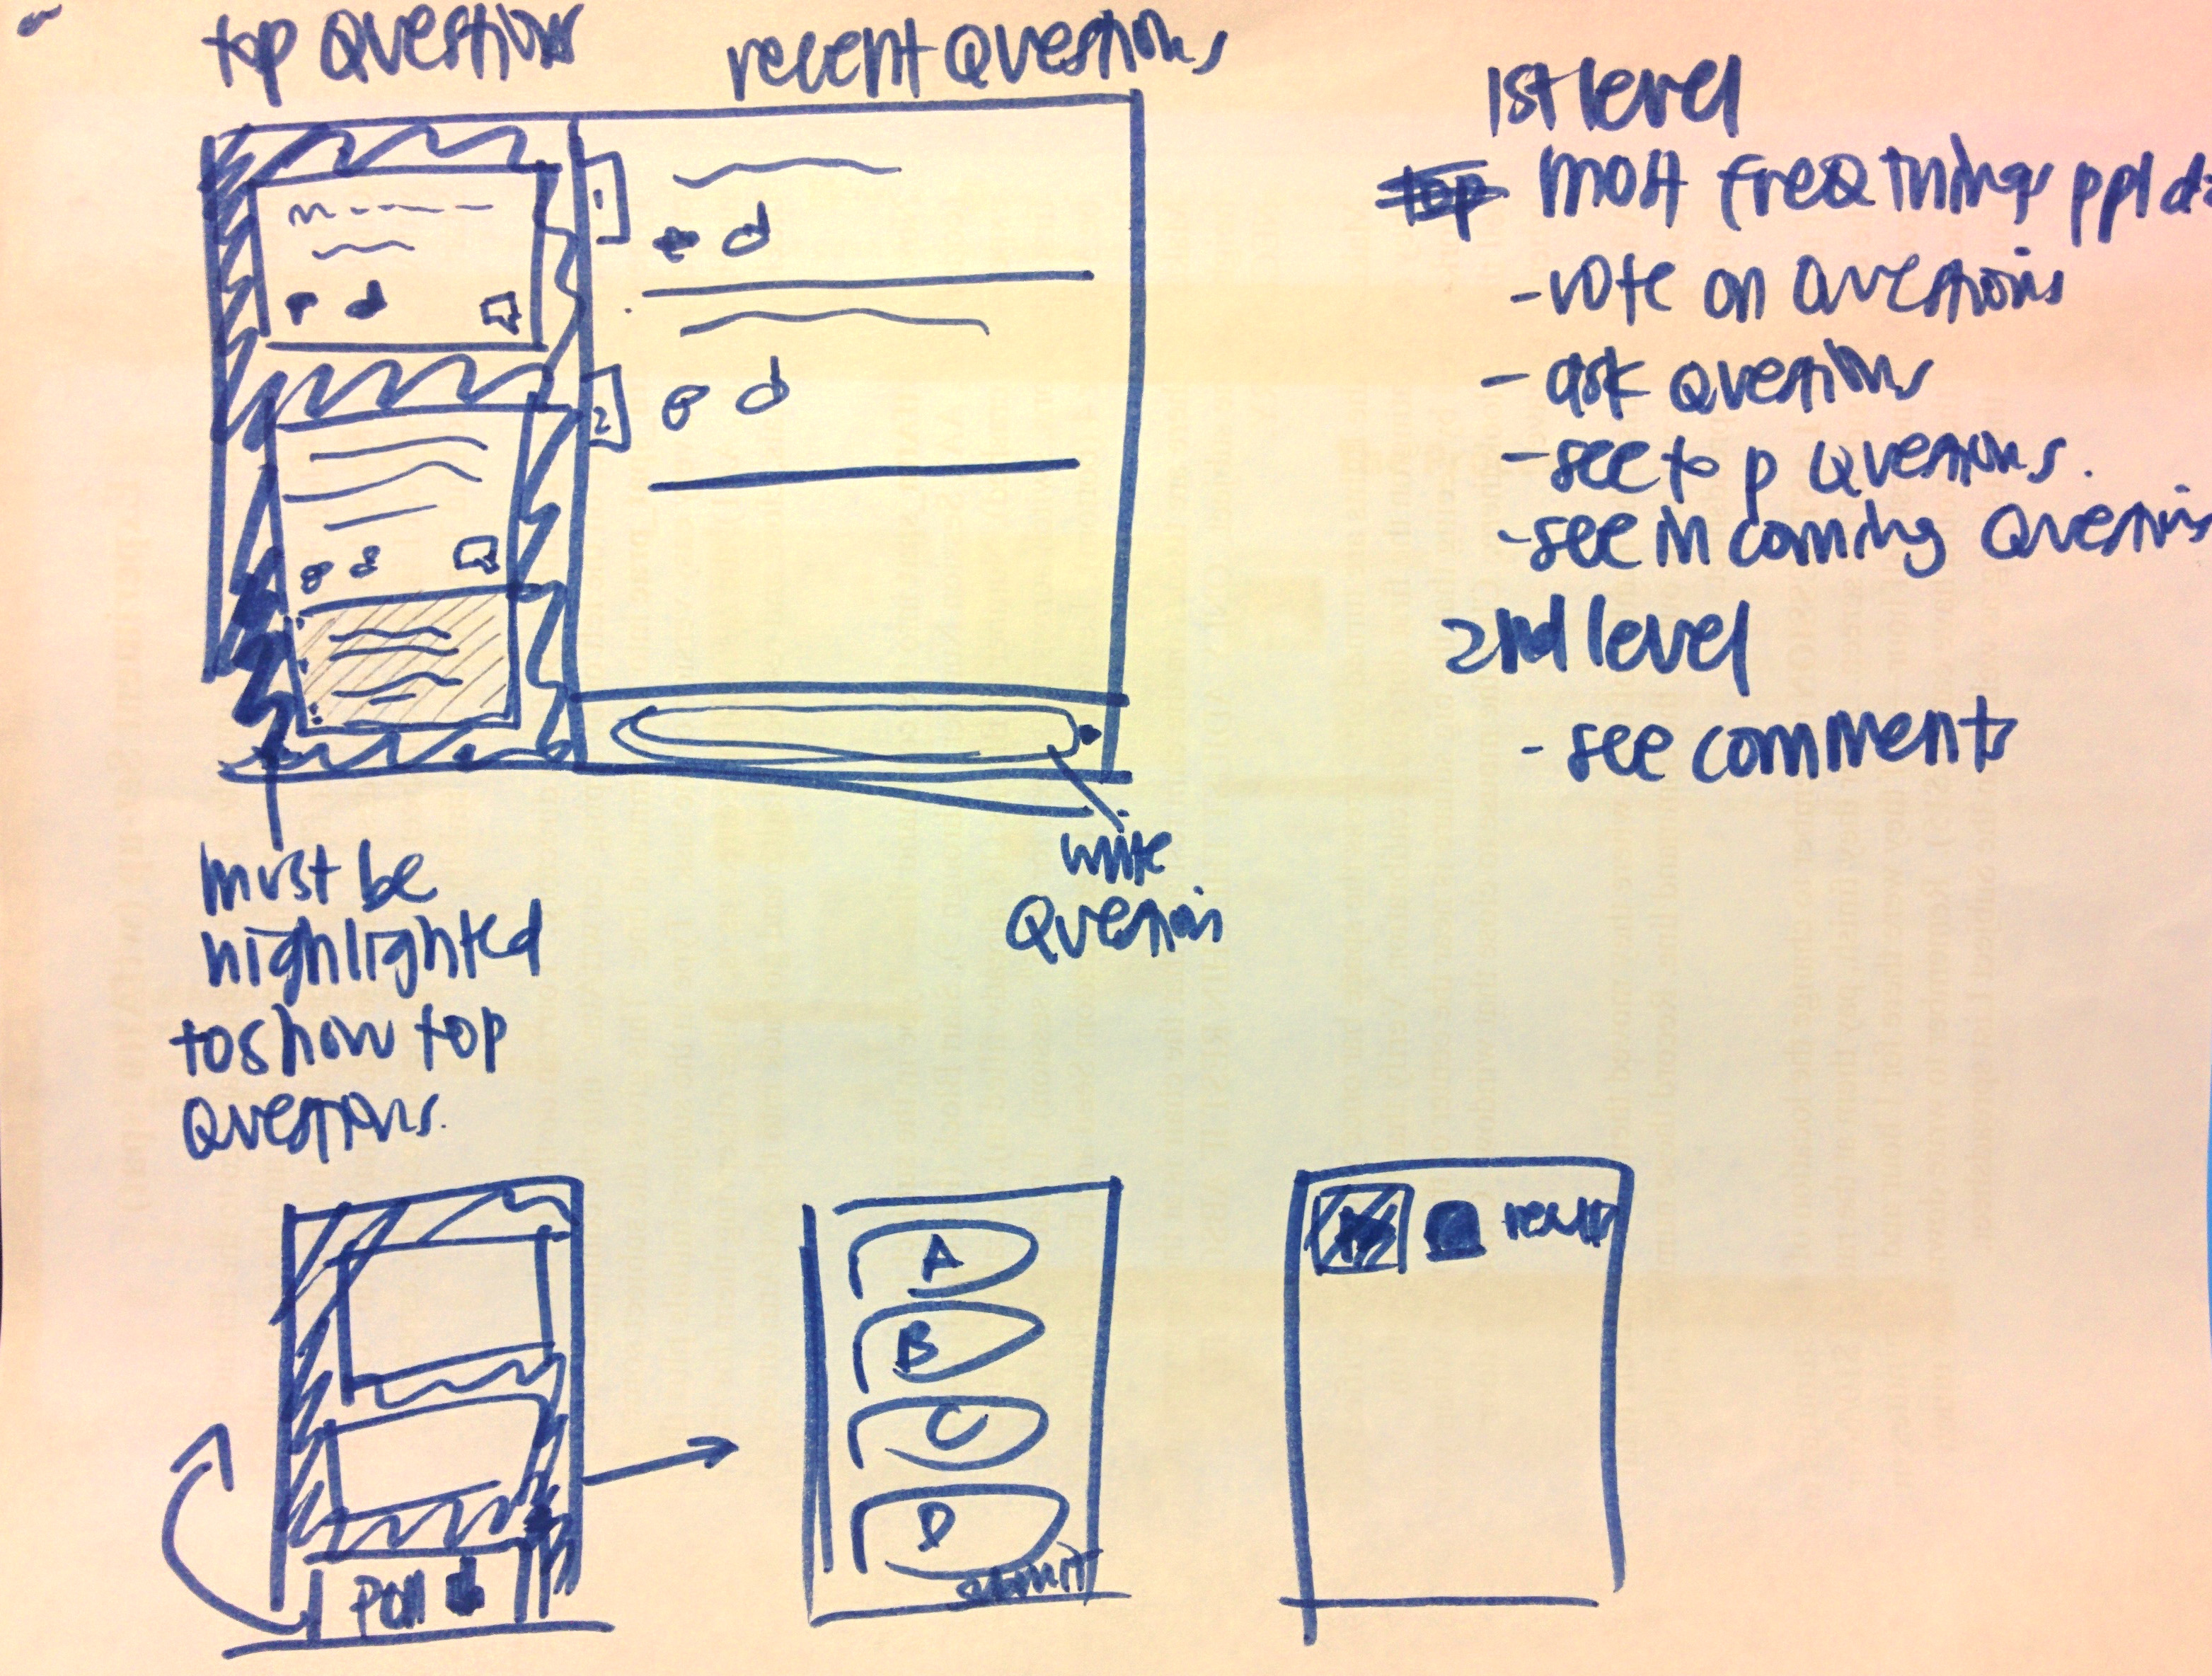 top Questions
recent Questions
1
2
write
Question
must be
highlighted
to show top
Questions.
1st level
top most freq things ppl do
- vote on Questions
- ask Questions
- see top Questions.
- see incoming Questions
2nd level
- see comments
Poll
A
B
C
D
submit
result